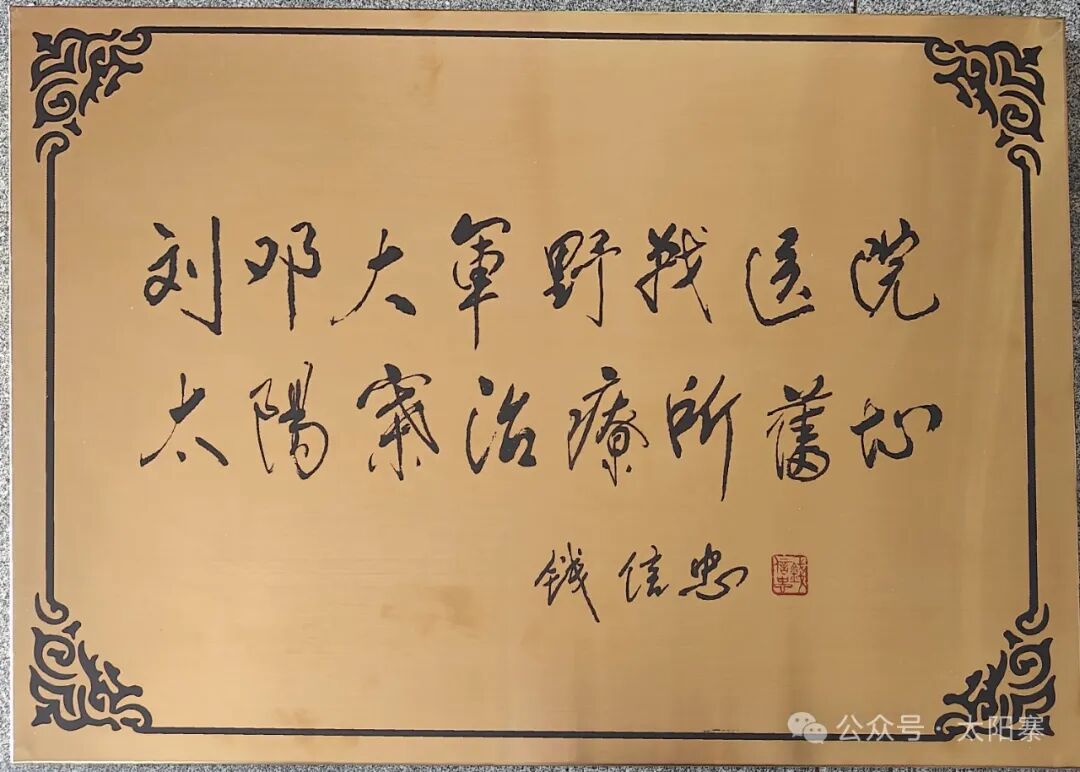 刘邓大軍野戰医院
太陽寨治療所舊址
钱信忠
钱信忠
公众号 · 太阳寨